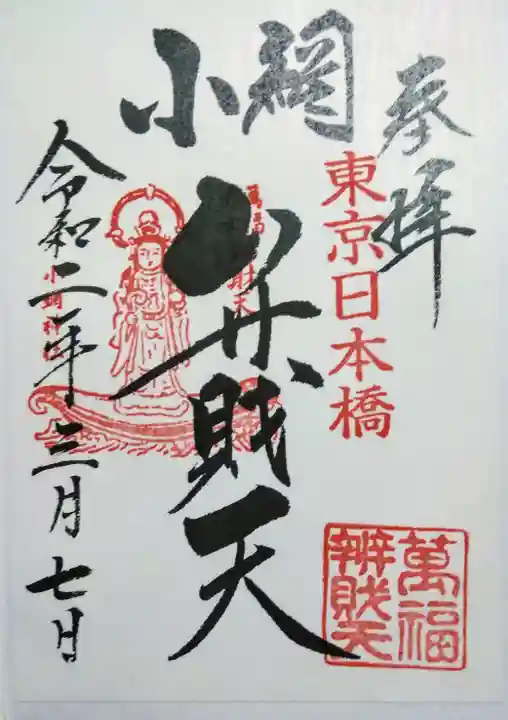 奉拝
東京日本橋
小網
弁財天
令和二年三月七日
萬福
辨財天
小網神社